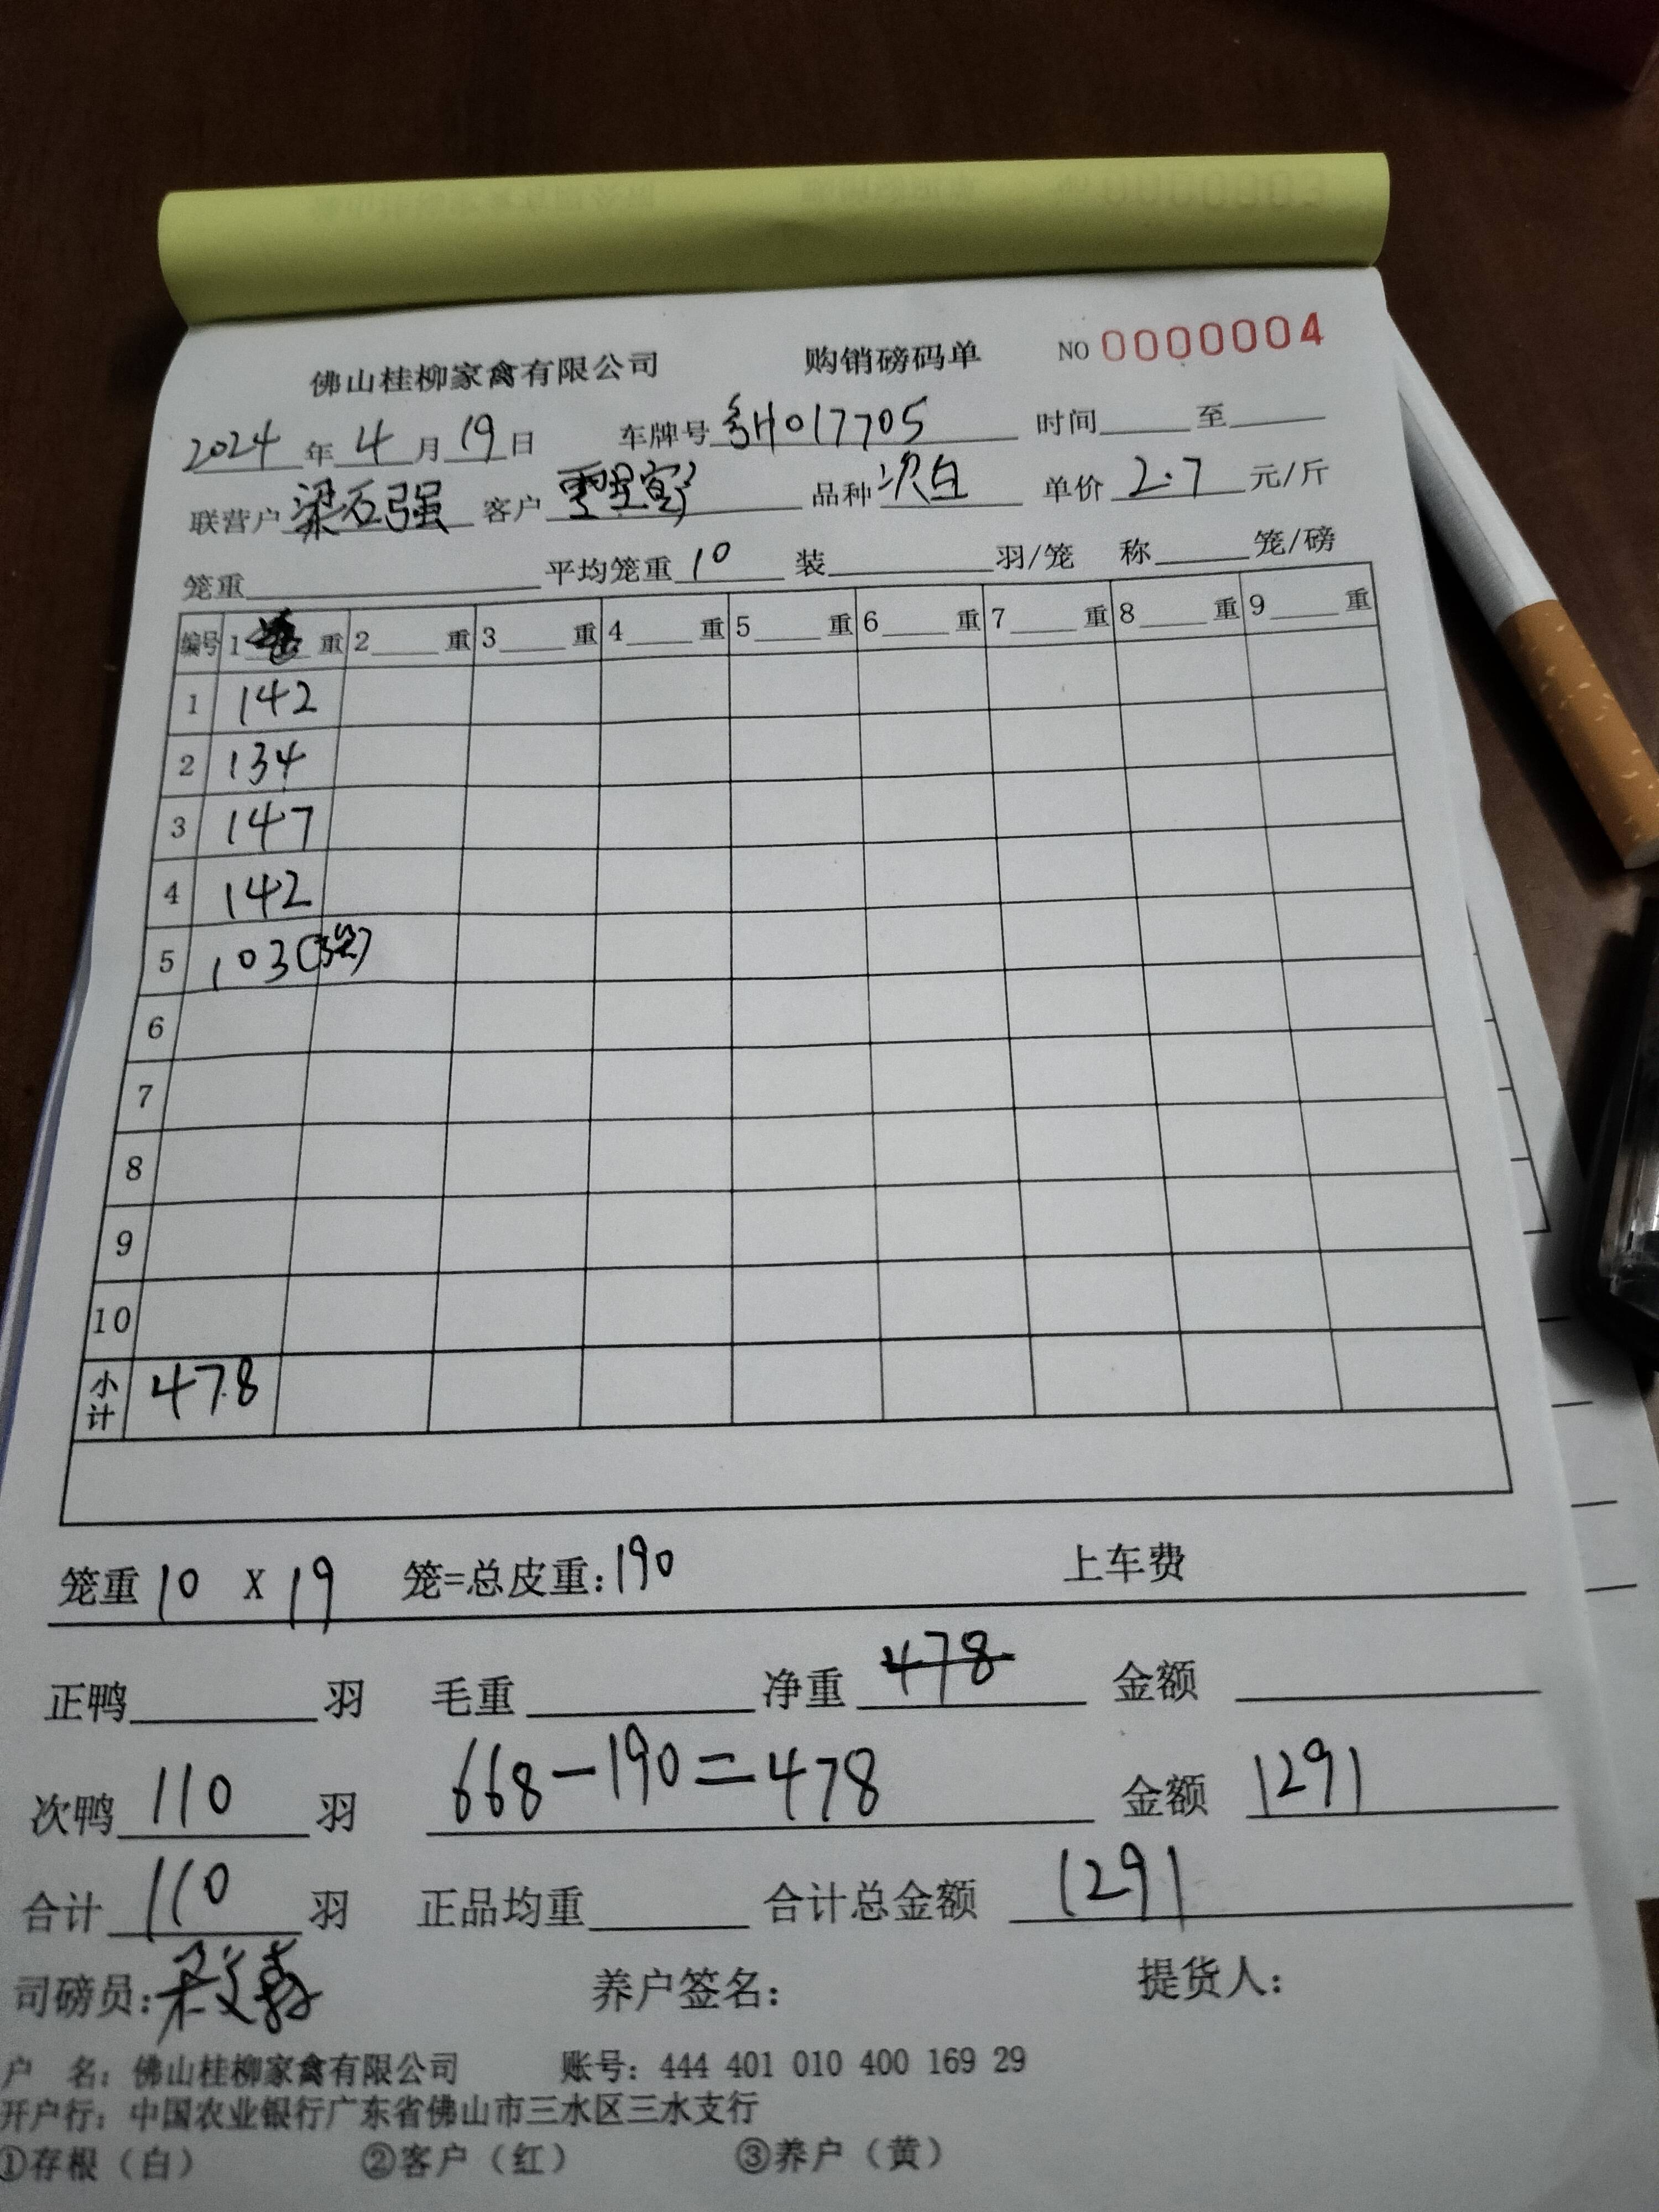 佛山桂柳家禽有限公司 购销磅码单 NO 0000004
2024 年 4 月 19 日 车牌号 粤H017705 时间 至
联营户 梁石强 客户 品种 次白 单价 2.7 元/斤
笼重 平均笼重 10 装 羽/笼 称 笼/磅
编号 1 重 2 重 3 重 4 重 5 重 6 重 7 重 8 重 9 重
1 142
2 134
3 147
4 142
5 103(3笼)
6
7
8
9
10
小计 478
笼重 10 X 19 笼=总皮重:190 上车费
正鸭 羽 毛重 净重 478 金额
次鸭 110 羽 668-190=478 金额 1291
合计 110 羽 正品均重 合计总金额 1291
司磅员: 养户签名: 提货人:
户 名: 佛山桂柳家禽有限公司 账号: 444 401 010 400 169 29
开户行: 中国农业银行广东省佛山市三水区三水支行
①存根(白) ②客户(红) ③养户(黄)